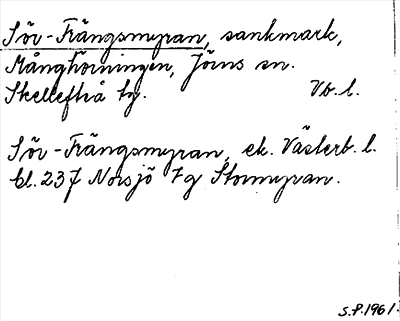 Söv-Trängsmyran, sankmark,
Mångtorningen, Jörns sn.
Skellefteå tg. Vb. l.
Söv-Trängsmyran, ek. Västerb. l.
bl. 237 Norsjö 7g Stormyran.
S.P. 1961.